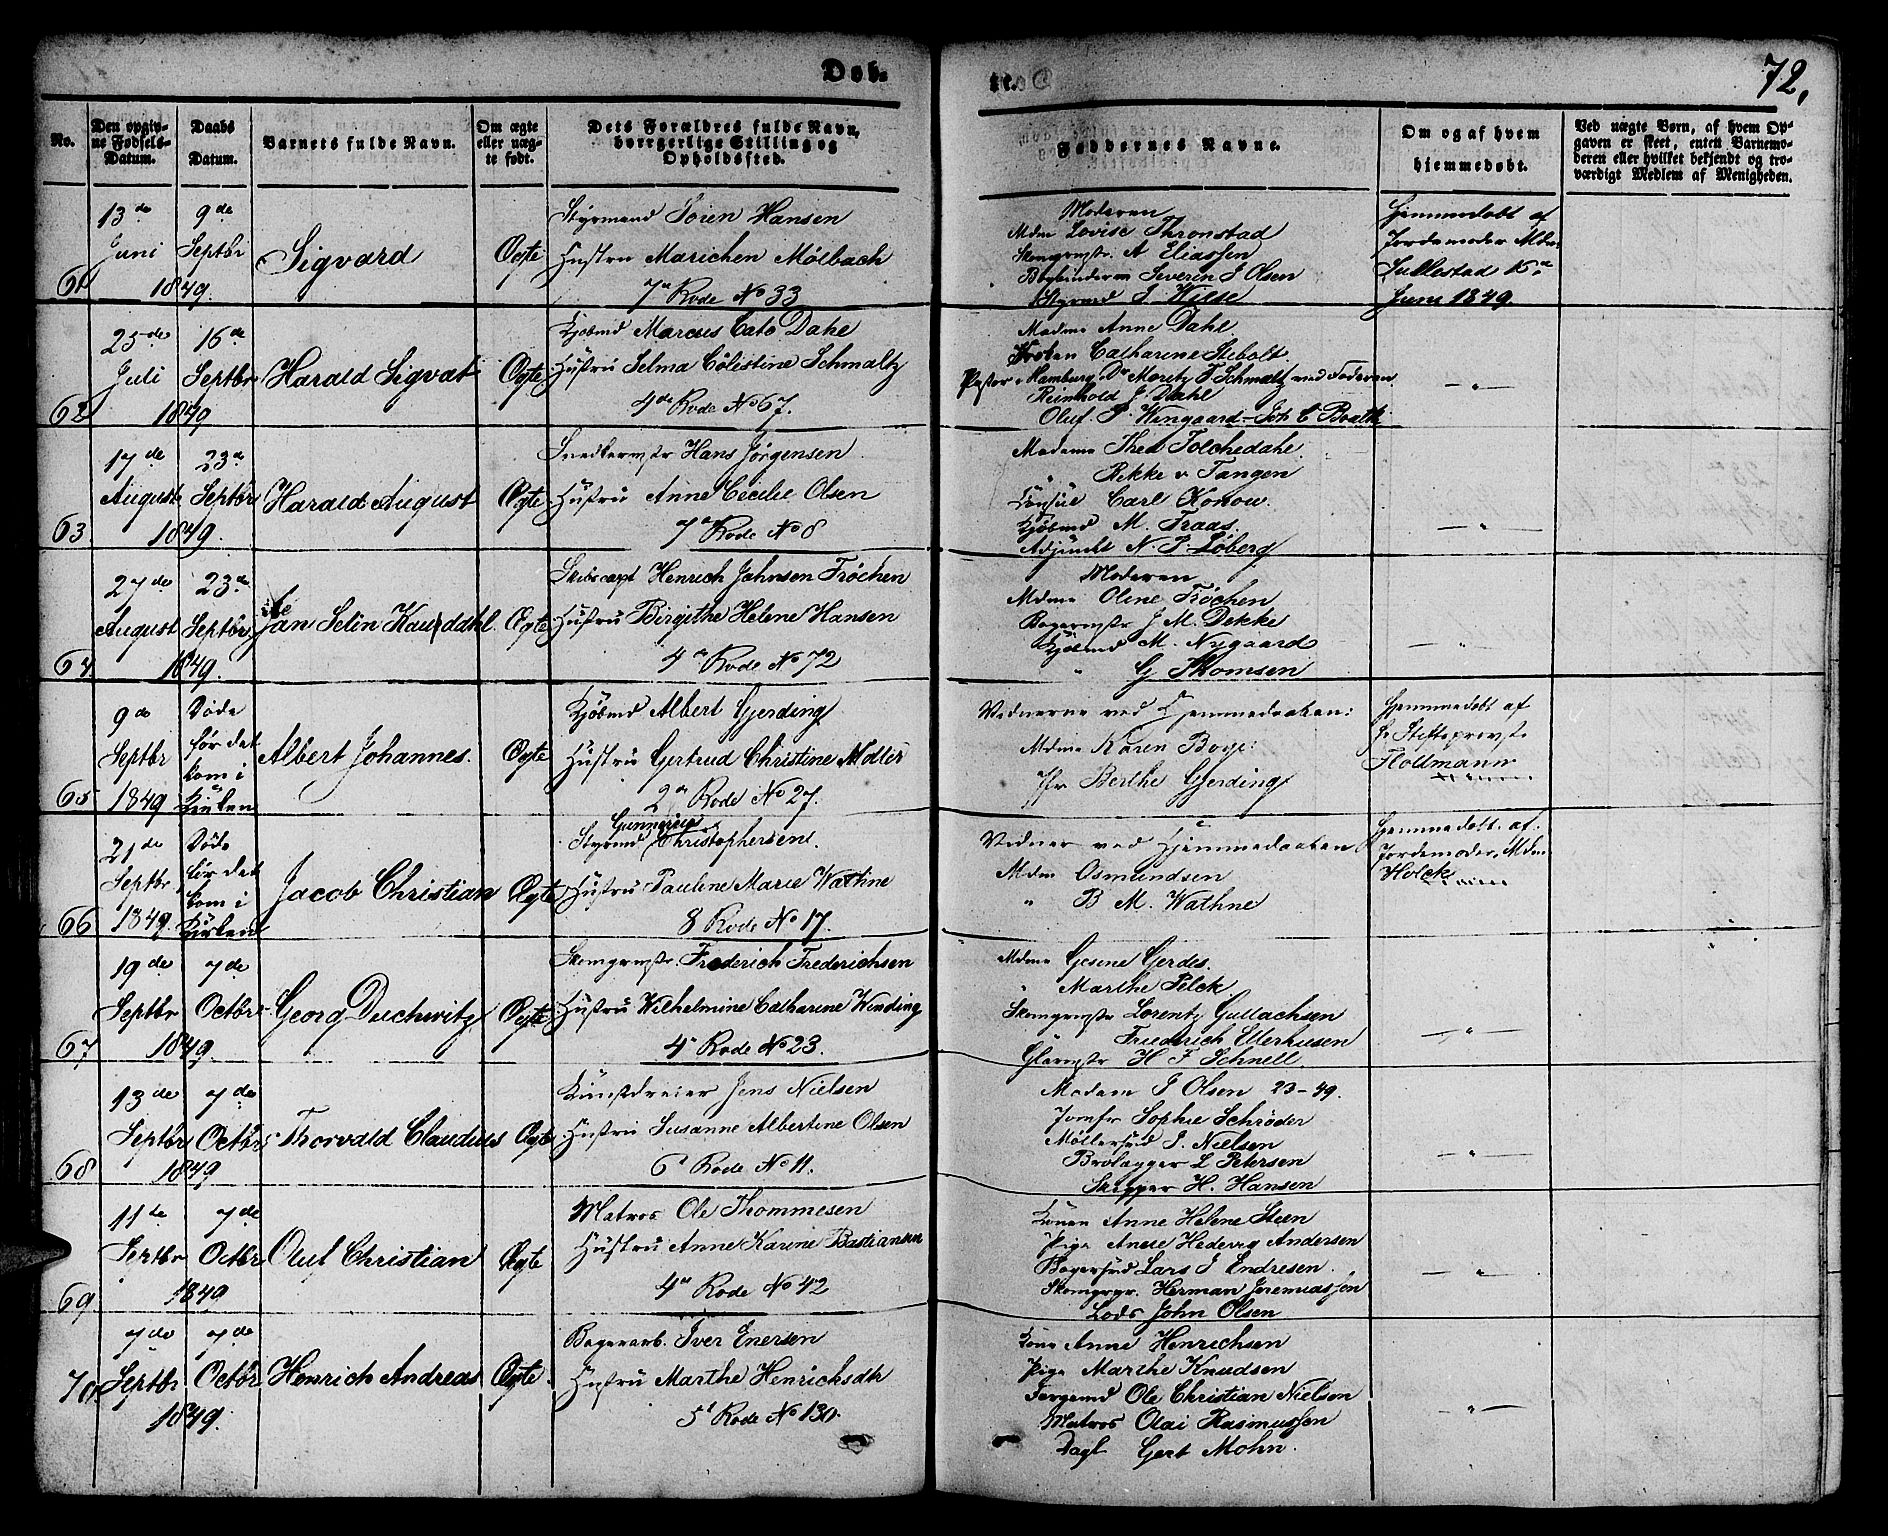 Døb-
te.
72,
No.
Den opgiv-
ne Fødsels-
Datum.
Daabs
Datum.
Barnets fulde Navn.
Om ægte
eller uæg-
te født.
Dets Forældres fulde Navn,
borgerlige Stilling og
Opholdssted.
Faddernes Navne.
Om og af hvem
hjemmedøbt.
Ved uægte Børn, af hvem Op-
gaven er skeet, enten Barnemo-
deren eller hvilket bekjendt og tro-
værdigt Medlem af Menigheden.
61
13de
Juni
1849.
9de
Septbr
Sigvard
Ægte
Styrmand Sören Hansen
Hustru Marichen Mølbach
7de Rode No 33
Moderen
Mdm Lovise Thronstad
Skomgrmstr. A Eliassen
Bogbinderen Severin J Olsen
Styrmd J. Wiese
Hjemmedøbt af
Jordemoder Mdm
Sullestad 15de
Juni 1849.
62
25de
Juli
1849
16de
Septbr
Harald Sigvat
Ægte
Kjøbmd Marcus Cato Dahl
Hustru Selma Cölestine Schmaltz
4de Rode No 67.
Madme Anne Dahl
Frøken Catharine Stibolt
Pastor i Hamburg Dr Moritz F Schmaltz ved Faderen
Reinhold J Dahl
Oluf P. Wingaard - Joh C Brath
— " —
63
17de
August
1849.
23de
Septbr
Harald August
Ægte
Snedkermstr Hans Jörgensen
Hustru Anne Cecilie Olsen
7de Rode No 8
Madame Thea Tolchedahl
" Rikke v Tangen
Consul Carl Konow.
Kjöbmd M. Traas.
Adjunkt N. P. Løberg
— " —
64
27de
August
1849.
23de
Septbr
Jan Selin Kaurddahl.
Ægte
Skibscapt Henrich Jahnsen Fröchen
Hustru Birgithe Helene Hansen
4de Rode No 72
Moderen
Mdme Oline Fröchen
Bagermstr J. M. Dekke
Kjöbmd M. Nygaard
" G Thomsen
— " —
65
9de
Septbr
1849
Døde
før det
kom i
Kirken
Albert Johannes.
Ægte
Kjöbmd Albert Gjerding
Hustru Gertrud Christine Möller
2den Rode No 27.
Vidnerne ved Hjemmedaaben:
Mdme Karen Boye:
Jfr Berthe Gjerding
Hjemmedøbt af
Hr Stiftsprovst
Floltmann
66
21de
Septbr
1849.
Døde
før det
kom i
Kirken
Jacob Christian
Ægte
Gunnerius
Styrmd Christophersen.
Hustru Pauline Marie Wathne
8 Rode No 17.
Vidner ved Hjemmedaaben
Mdm Osmundsen
" B M. Wathne
Hjemmedøbt af
Jordemoder, Mdm
Holck
67
19de
Septbr
1849.
7de
Octbr
Georg Duchwitz
Ægte
Skomgrmstr. Frederich Frederichsen
Hustru Wilhelmine Catharine Winding
4de Rode No 23.
Mdme Gesine Gerdes.
" Marthe Pilck
Skomgrmstr Lorentz Gullachsen
Friederich Ellerhusen
Glarmstr H F Schnell.
— " —
68
13de
Septbr
1849
7de
Octbr
Thorvald Claudius
Ægte
Kunstdreier Jens Nielsen
Hustru Susanne Albertine Olsen
6te Rode No 11.
Madam J Olsen 23-49.
Jomfr Sophie Schröder
Møllersvd J. Nielsen
Brolægger L Petersen
Skipper H. Hansen
— " —
69
11te
Septbr
1849
7de
Octbr
Oluf Christian
Ægte
Matros Ole Thommesen
Hustru Anne Karine Bastiansen
4de Rode No 42
Konen Anne Helene Steen
Pige Anne Hedevig Andersen
Bagersvd Lars J Endresen.
Skomgrgr. Herman Jeremiassen
Lods John Olsen
— " —
70
7de
Septbr
1849.
7de
Octbr
Henrich Andreas
Ægte
Bagerarb. Iver Enersen
Hustru Marthe Henrichsdtr
5te Rode No 130.
Kone Anne Henrichsen
Pige Marthe Knudsen
Færgemd Ole Christian Nielsen
Matros Olai Rasmussen
Dagl Gert Mohn.
— " —